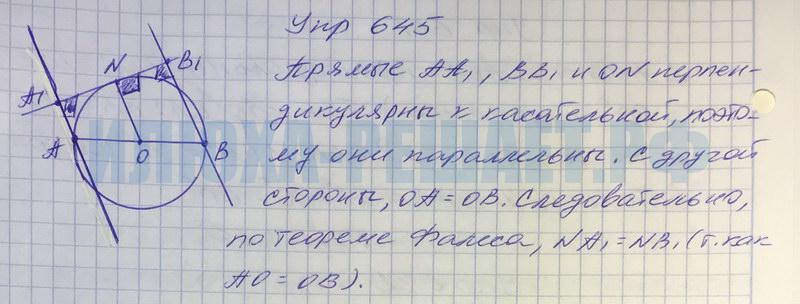 Упр 645
Прямые AA₁, BB₁ и ON перпен-
дикулярны к касательной, поэто-
му они параллельны. С другой
стороны, OA = OB. Следовательно,
по теореме Фалеса, NA₁ = NB₁ (т.как
AO = OB).
A₁
N
B₁
A
O
B
ИЛЮХА-РЕШАЕТ.РФ